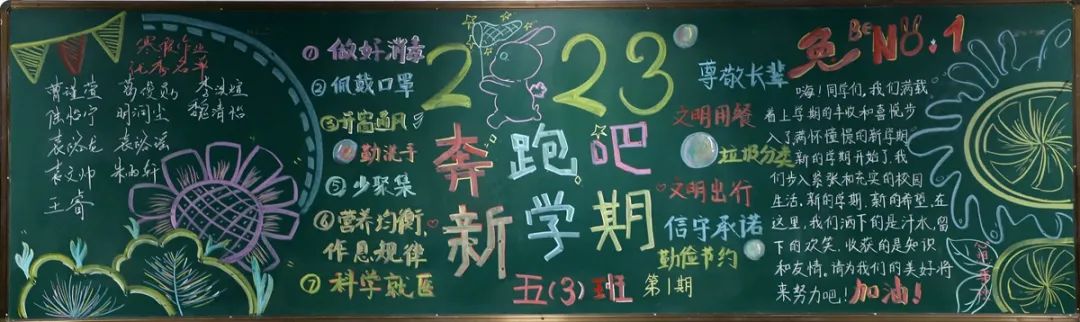 寒假作业
优秀名单
王睿
①做好消毒
②佩戴口罩
③开窗通风
④勤洗手
⑤少聚集
⑥营养均衡
作息规律
⑦科学就医
2023
奔跑吧
新学期
五(3)班 第1期
尊敬长辈
文明用餐
垃圾分类
文明出行
信守承诺
勤俭节约
兔BeNO.1
嗨!同学们,我们满载
着上学期的丰收和喜悦步
入了满怀憧憬的新学期
新的学期开始了,我
们步入紧张和充实的校园
生活,新的学期,新的希望,在
这里,我们洒下的是汗水,留
下的欢笑,收获的是知识
和友情,请为我们的美好将
来努力吧!加油!